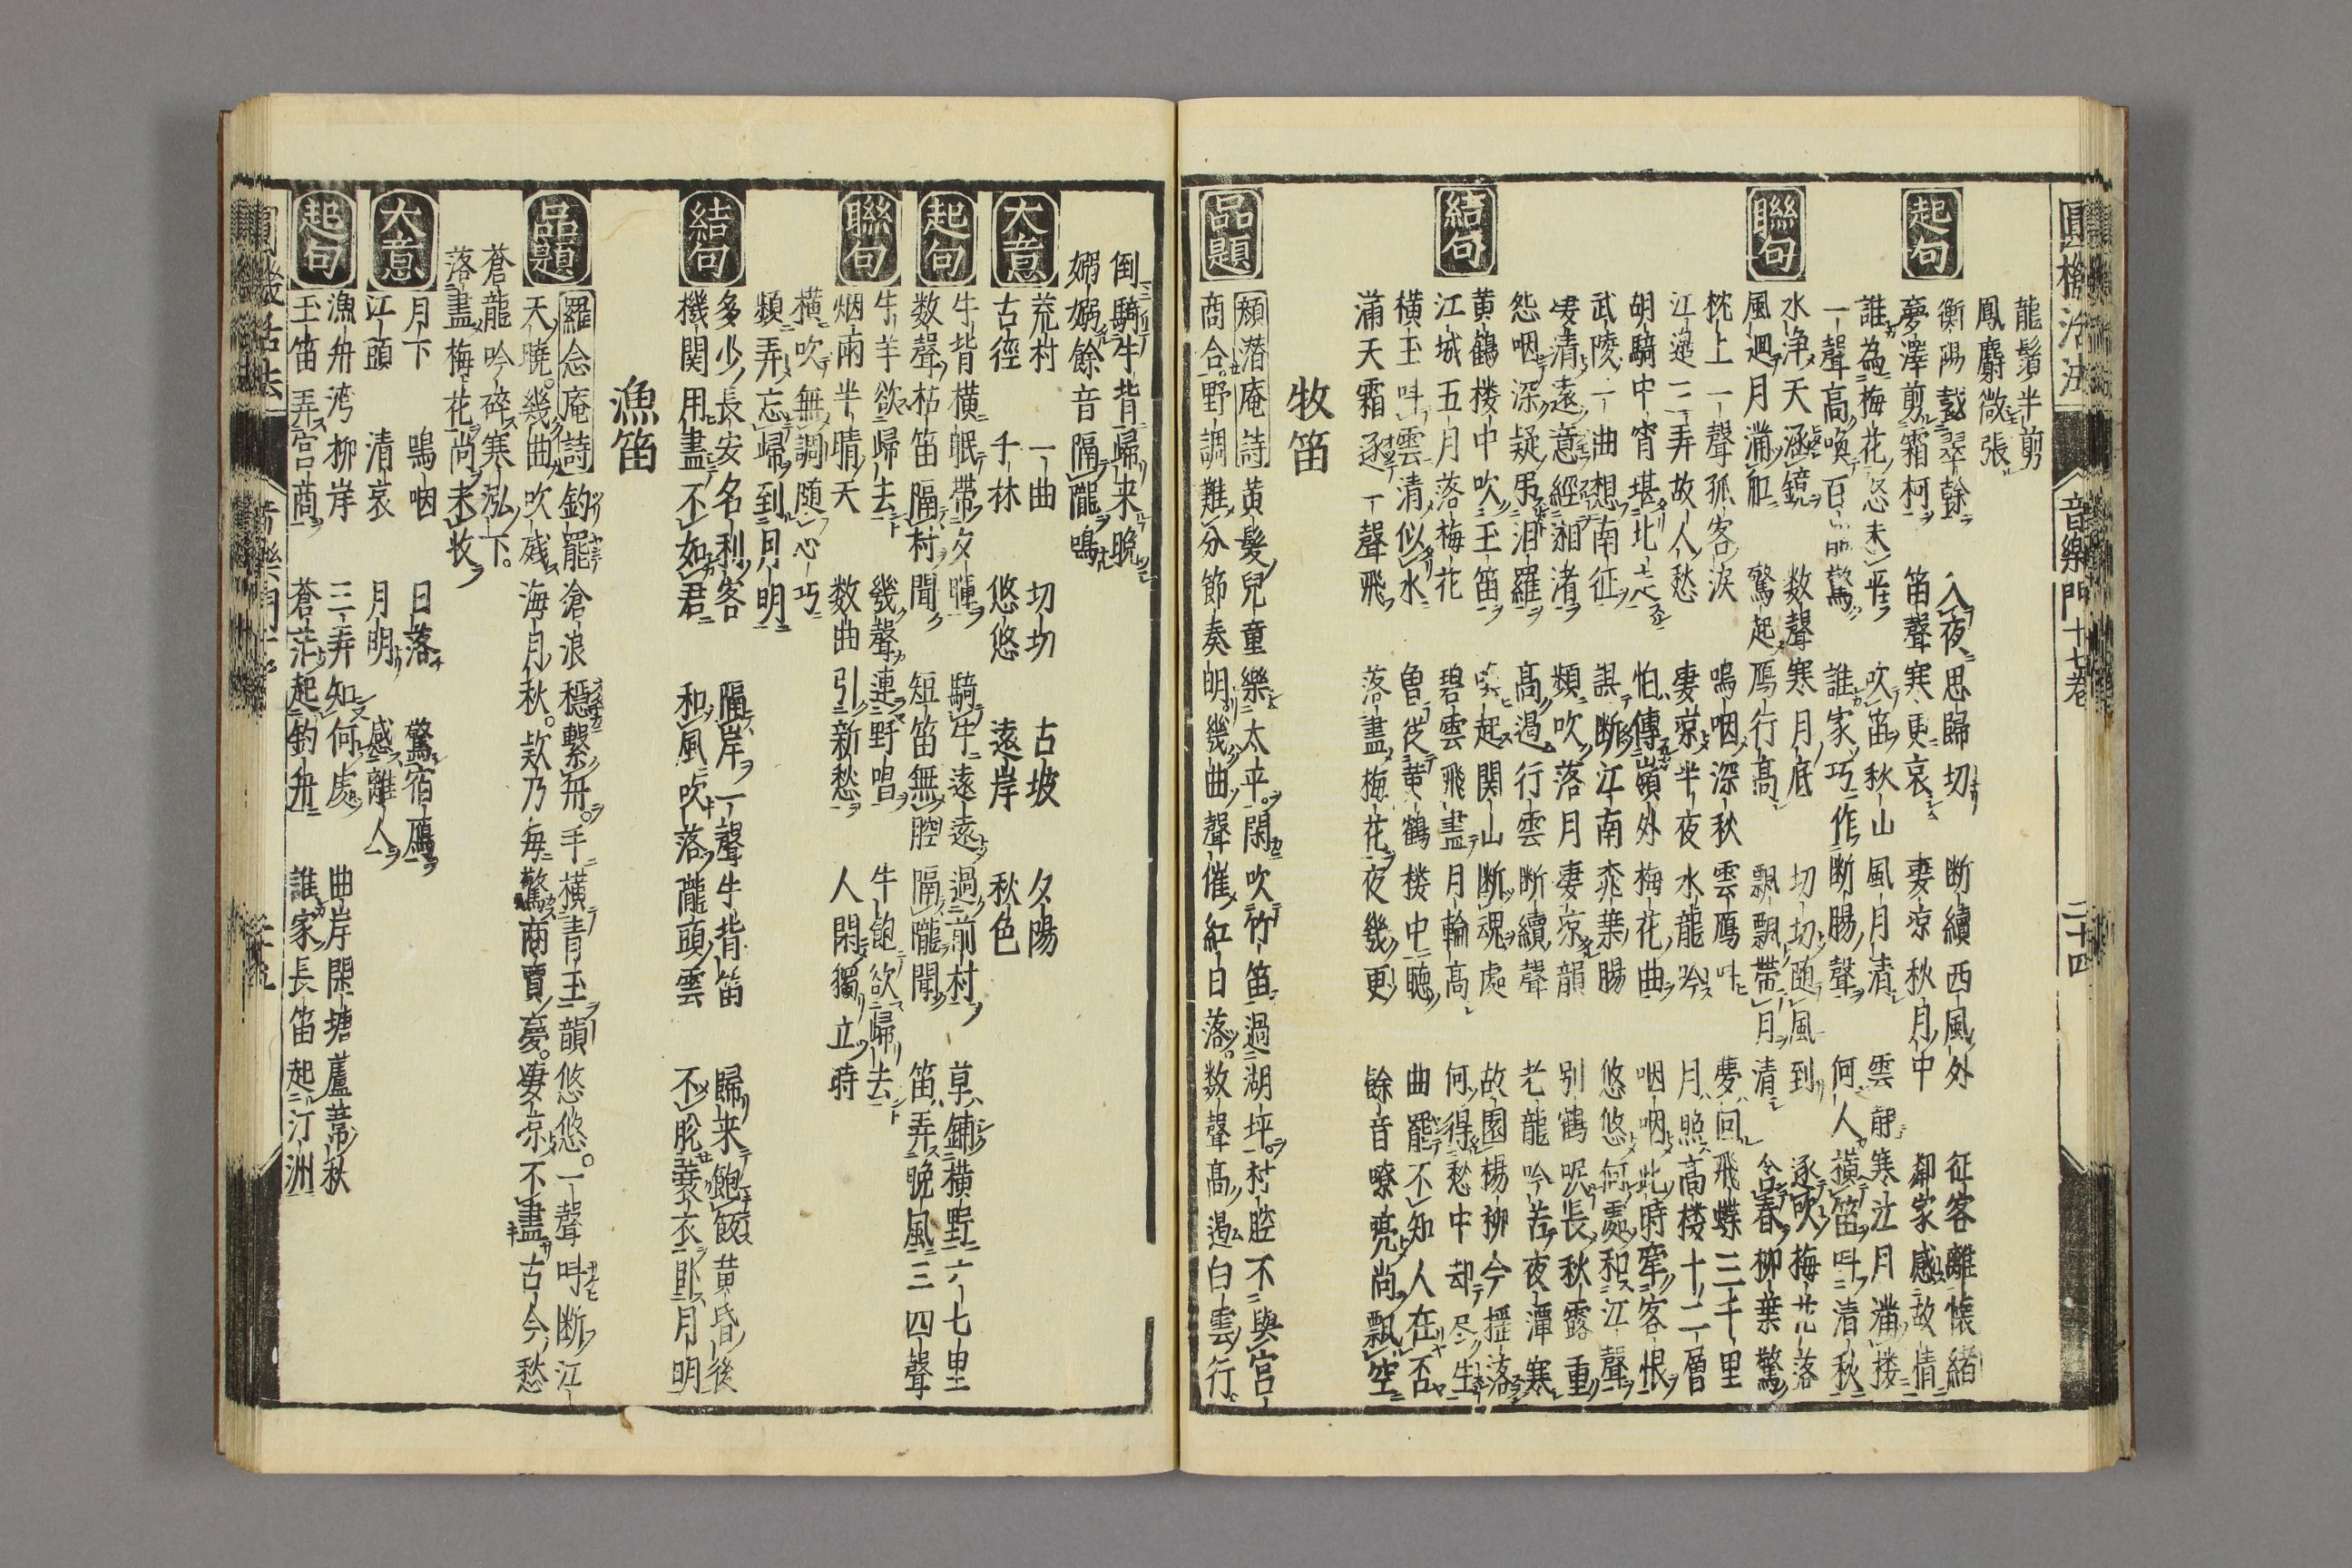 圓機活法 音樂門十七卷 二十四
龍鬚半剪
鳳麝微張
起句
衡陽裁翠幹 入夜思歸切 断續西風外 征客離懐緒
夢澤剪霜柯 笛聲寒更哀 妻凉秋月中 鄰家感故情
誰為梅花怒未平 吹笛秋山風月清 雲静寒江月滿楼
一聲高喚百品驚 誰家巧作断腸聲 何人横笛呌清秋
聯句
水浄天涵鏡 数聲寒月底 切切随風到 逐吹梅花落
風廻月滿舡 驚起鴈行高 飄飄帶月清 含春柳葉驚
枕上一聲孤客淚 嗚咽深秋雲鴈呌 夢回飛蝶三千里
江邊三弄故人愁 凄凉半夜水龍吟 月照高楼十二層
胡騎中宵堪北走 怕傳嶺外梅花曲 咽咽此時牽客恨
武陵一曲想南征 誤断江南乖葉腸 悠悠何處和江聲
凄清遠意經湘渚 頻吹落月妻凉韻 别鶴呪長秋露重
怨咽深疑吊汨羅 高遏行雲断續聲 老龍吟苦夜潭寒
黄鶴楼中吹玉笛 喚起関山断魂處 故園楊柳今揺落
江城五月落梅花 碧雲飛盡月輪高 何得愁中却尽生
結句
横玉呌雲清似水 曽従黄鶴楼中聴 曲罷不知人在否
滿天霜逐一聲飛 落盡梅花夜幾更 餘音嘹亮尚飄空
牧笛
品題
頼潜庵詩 黄髮兒童樂太平 閑吹竹笛過湖坪 村腔不與宮
商合 野調難分節奏明 幾曲聲催紅日落 数聲高遏白雲行
倒騎牛背歸来晩
嫋嫋餘音隔隴鳴
大意
荒村 一曲 切切 古坡 夕陽
古徑 千林 悠悠 遠岸 秋色
起句
牛背横眠帶夕曛 騎牛遠遠過前村 草鋪横野六七里
数聲枯笛隔村聞 短笛無腔隔隴聞 笛弄晩風三四聲
聯句
牛羊欲歸去 幾聲連野唱 牛飽欲歸去
烟雨半晴天 数曲引新愁 人閑獨立時
横吹無調随心巧
頻弄忘歸到月明
結句
多少長安名利客 隔岸一聲牛背笛 歸来飽飯黄昏後
機関用盡不如君 和風吹落隴頭雲 不脱蓑衣卧月明
漁笛
品題
羅念庵詩 釣罷滄浪穏繫舟 手横青玉韻悠悠 一聲呌断江
天曉 幾曲吹残海月秋 欵乃毎驚商賈夢 凄凉不盡古今愁
蒼龍吟碎寒泓下
落盡梅花尚未收
大意
月下 嗚咽 日落 驚宿鴈
江頭 清哀 月明 感離人
起句
漁舟湾柳岸 三弄知何處 曲岸閑塘蘆葦秋
玉笛弄宮商 蒼茫起釣舟 誰家長笛起汀洲